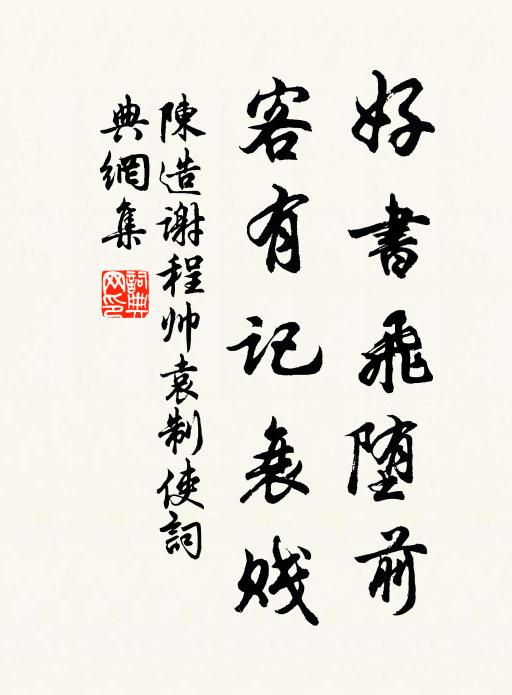 好書飛堕前
客有記衰賤
陳造謝程帅袁制使詞
典網集
詞典网印